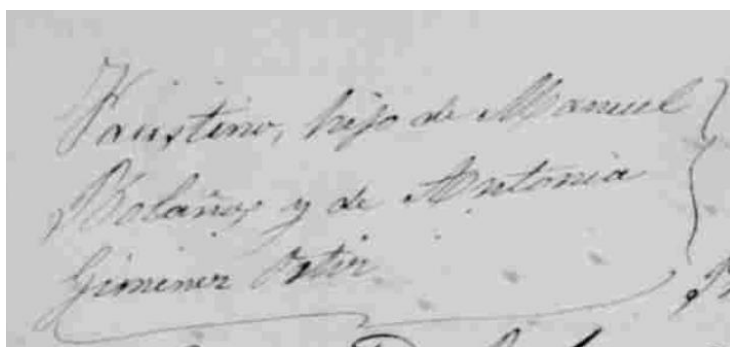 Faustino, hijo de Manuel
Bolaños y de Antonia
Gimenez